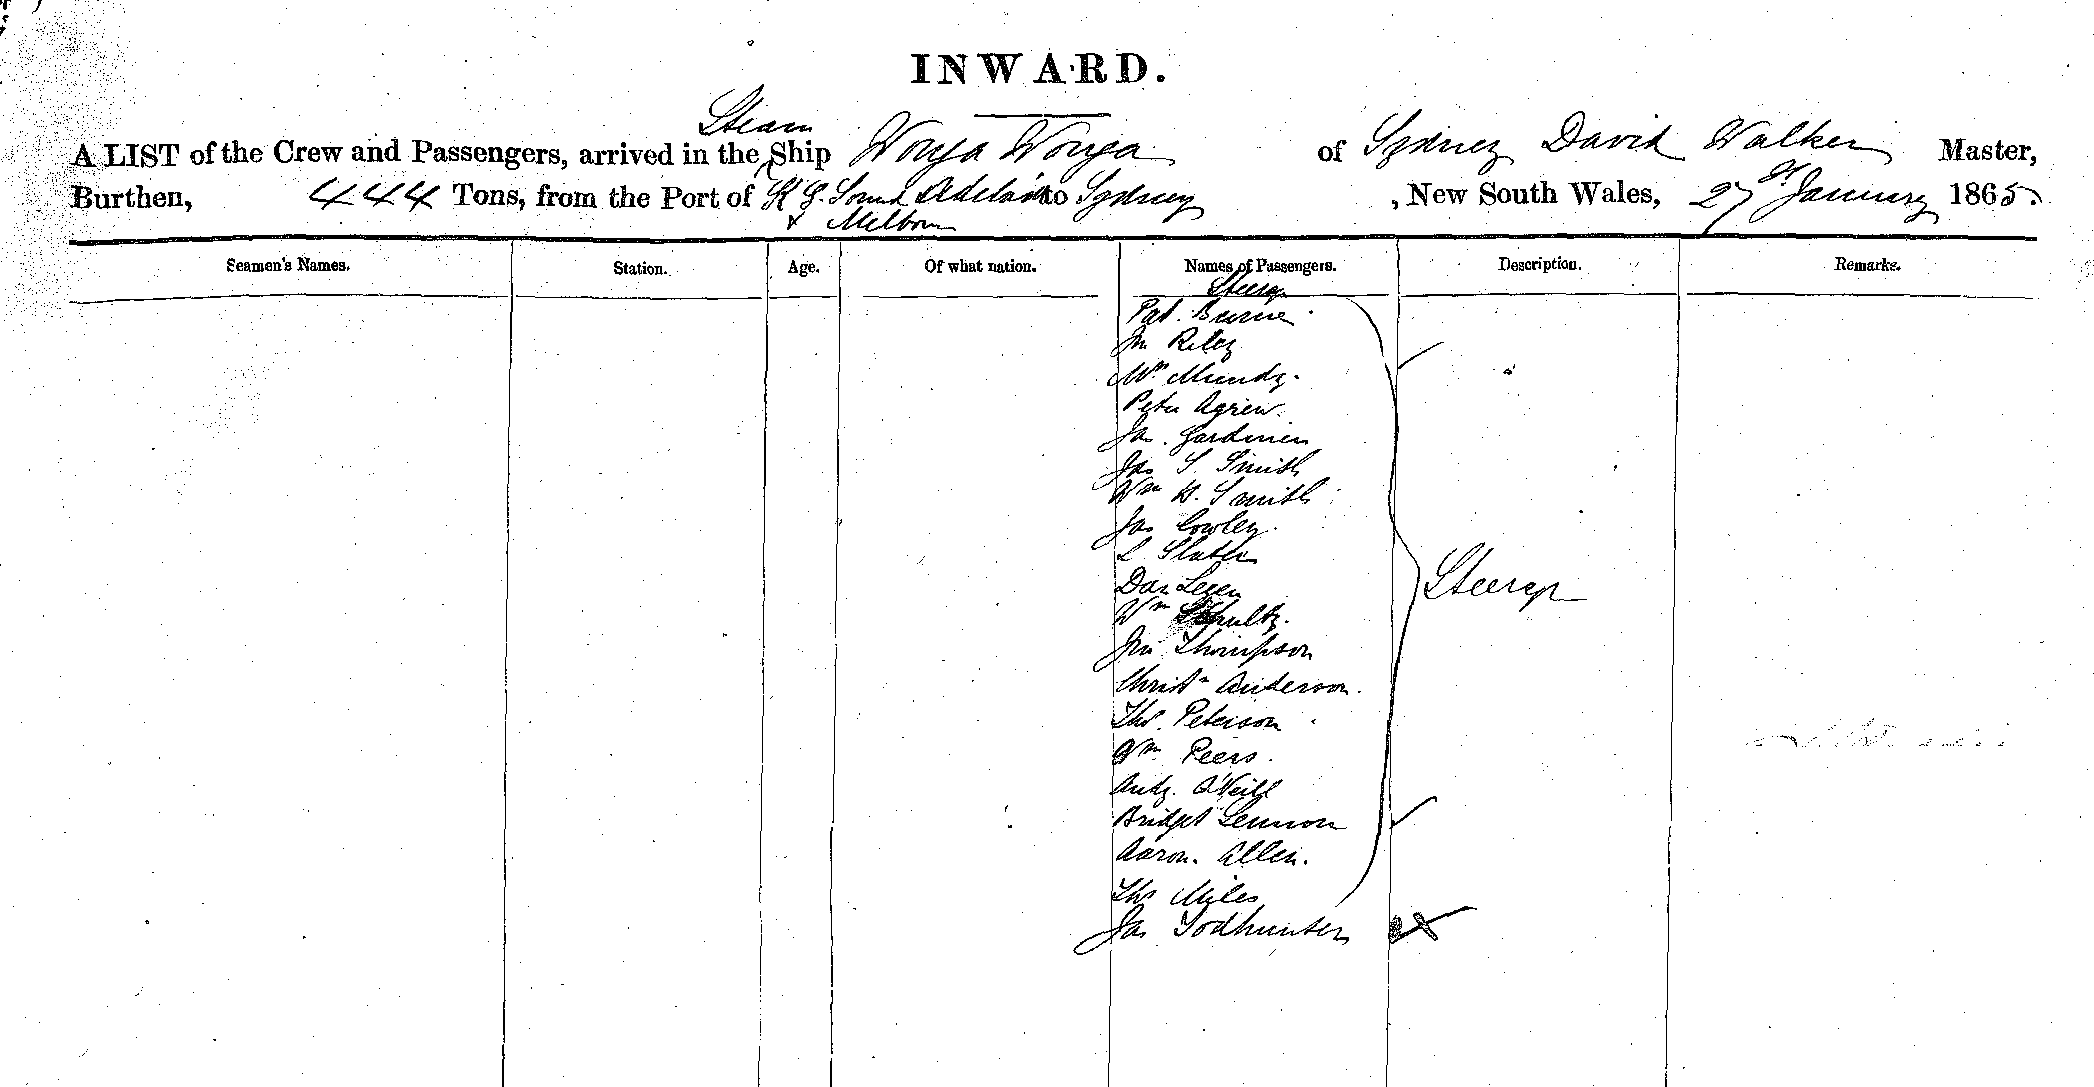 INWARD.
Steam
A LIST of the Crew and Passengers, arrived in the Ship Wonga Wonga of Sydney David Walker Master,
Burthen, 444 Tons, from the Port of K G. Sound Adelaide to Sydney , New South Wales, 27 January 1865.
& Melbourn
Seamen's Names. Station. Age. Of what nation. Names of Passengers. Description. Remarks.
Steerge
Pat. Burne
Jn Riley
Wm Mundy.
Peter Agnew.
Jas. Gardiner
Jas S. Smith
Wm H. Smith
Jas Cowley.
L Slater
Dan
Wm Schultz.
Jno Thompson
Christn Anderson.
Thos. Peterson
Wm Peers.
Andy. O'Neill
Bridget Lennon
Aaron. Allen.
Thos Miles
Jas Todhunter
Steerge